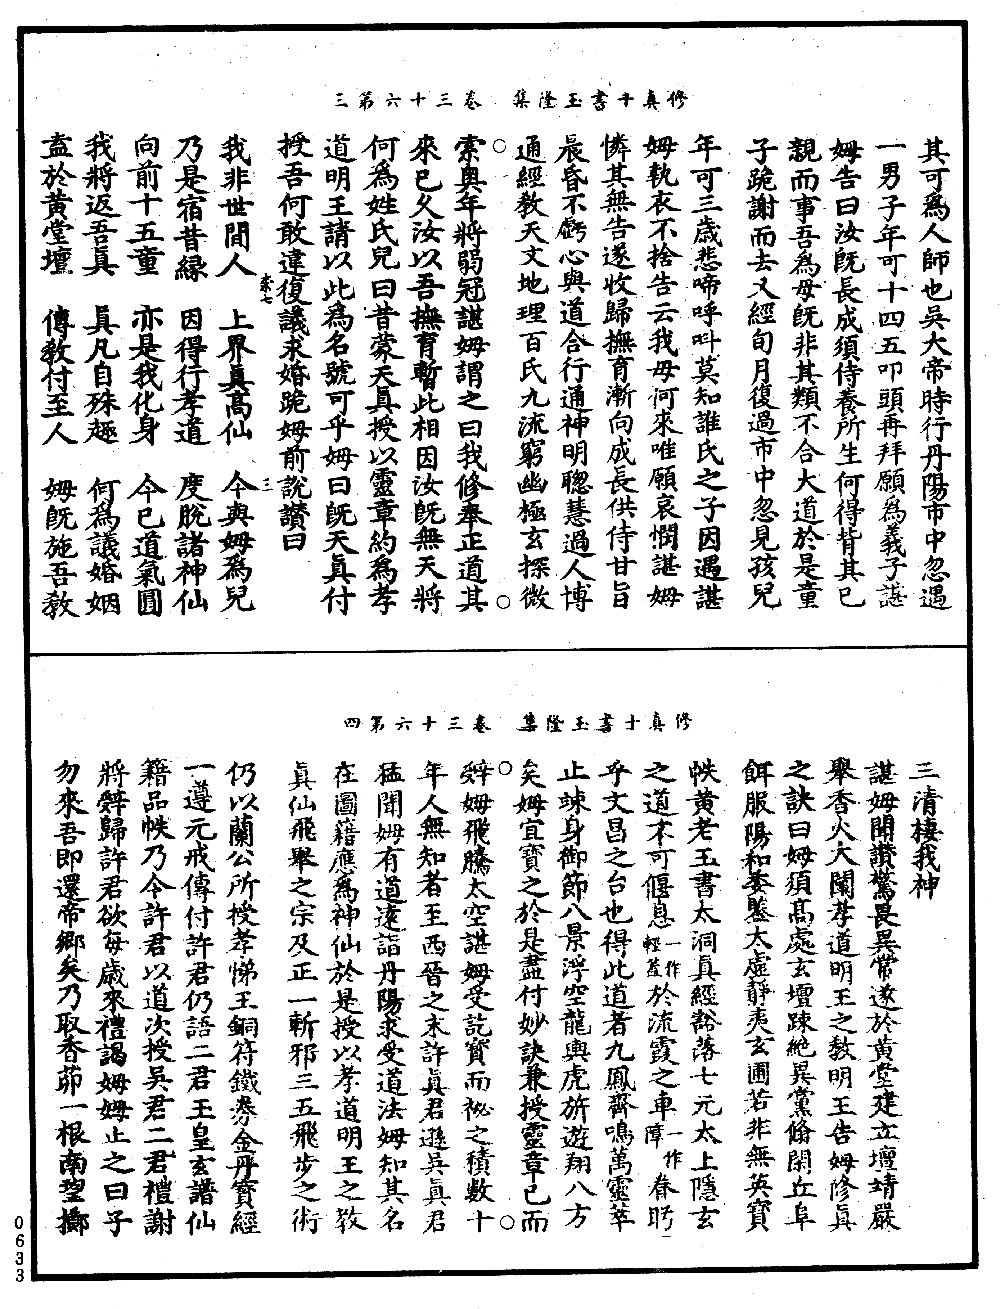 修真十書玉隆集　卷三十六第三
其可爲人師也吳大帝時行丹陽市中忽遇
一男子年可十四五叩頭再拜願爲義子諶
姆告曰汝既長成須侍養所生何得背其已
親而事吾爲母既非其類不合大道於是童
子跪謝而去又經旬月復過市中忽見孩兒
年可三歲悲啼呼叫莫知誰氏之子因遇諶
姆執衣不捨告云我母何來唯願哀憫諶姆
憐其無告遂收歸撫育漸向成長供侍甘旨
晨昏不虧心與道合行通神明聰慧過人博
通經教天文地理百氏九流窮幽極玄探微
索奧年將弱冠諶姆謂之曰我修奉正道其
來已久汝以吾撫育暫此相因汝既無天將
何爲姓氏兒曰昔蒙天真授以靈章約爲孝
道明王請以此爲名號可乎姆曰既天真付
授吾何敢違復議求婚跪姆前說讚曰
我非世間人　上界真高仙　今與姆爲兒
乃是宿昔緣　因得行孝道　度脫諸神仙
向前十五童　亦是我化身　今已道氣圓
我將返吾真　真凡自殊趣　何爲議婚姻
盍於黃堂壇　傳教付至人　姆既施吾教
修真十書玉隆集　卷三十六第四
三清棲我神
諶姆聞讚驚畏異常遂於黃堂建立壇靖嚴
舉香火大闡孝道明王之教明王告姆修真
之訣曰姆須高處玄壇踈絕異黨脩閑丘阜
餌服陽和委鑒太虛靜夷玄圃若非無英寶
帙黃老玉書太洞真經豁落七元太上隱玄
之道不可偃息一作輕蓋於流霞之車障一作眷眄
乎文昌之台也得此道者九鳳齊鳴萬靈萃
止竦身御節八景浮空龍輿虎旂遊翔八方
矣姆宜寶之於是盡付妙訣兼授靈章已而
辭姆飛騰太空諶姆受訖寶而祕之積數十
年人無知者至西晉之末許真君遜吳真君
猛聞姆有道遠詣丹陽求受道法姆知其名
在圖籍應爲神仙於是授以孝道明王之教
真仙飛舉之宗及正一斬邪三五飛步之術
仍以蘭公所授孝悌王銅符鐵券金丹寶經
一遵元戒傳付許君仍語二君玉皇玄譜仙
籍品帙乃令許君以道次授吳君二君禮謝
將辭歸許君欲每歲來禮謁姆姆止之曰子
勿來吾即還帝鄉矣乃取香茆一根南望擲
0633